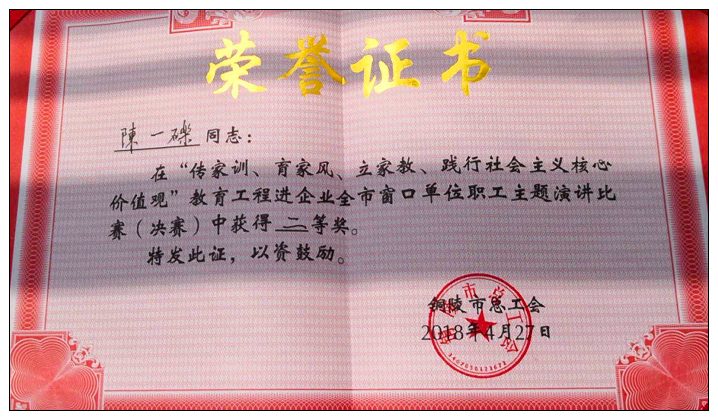 荣誉证书
陳一礫同志：
在“传家训、育家风、立家教、践行社会主义核心
价值观”教育工程进企业全市窗口单位职工主题演讲比
赛（决赛）中获得二等奖。
特发此证，以资鼓励。
铜陵市总工会
2018年4月27日
铜陵市总工会